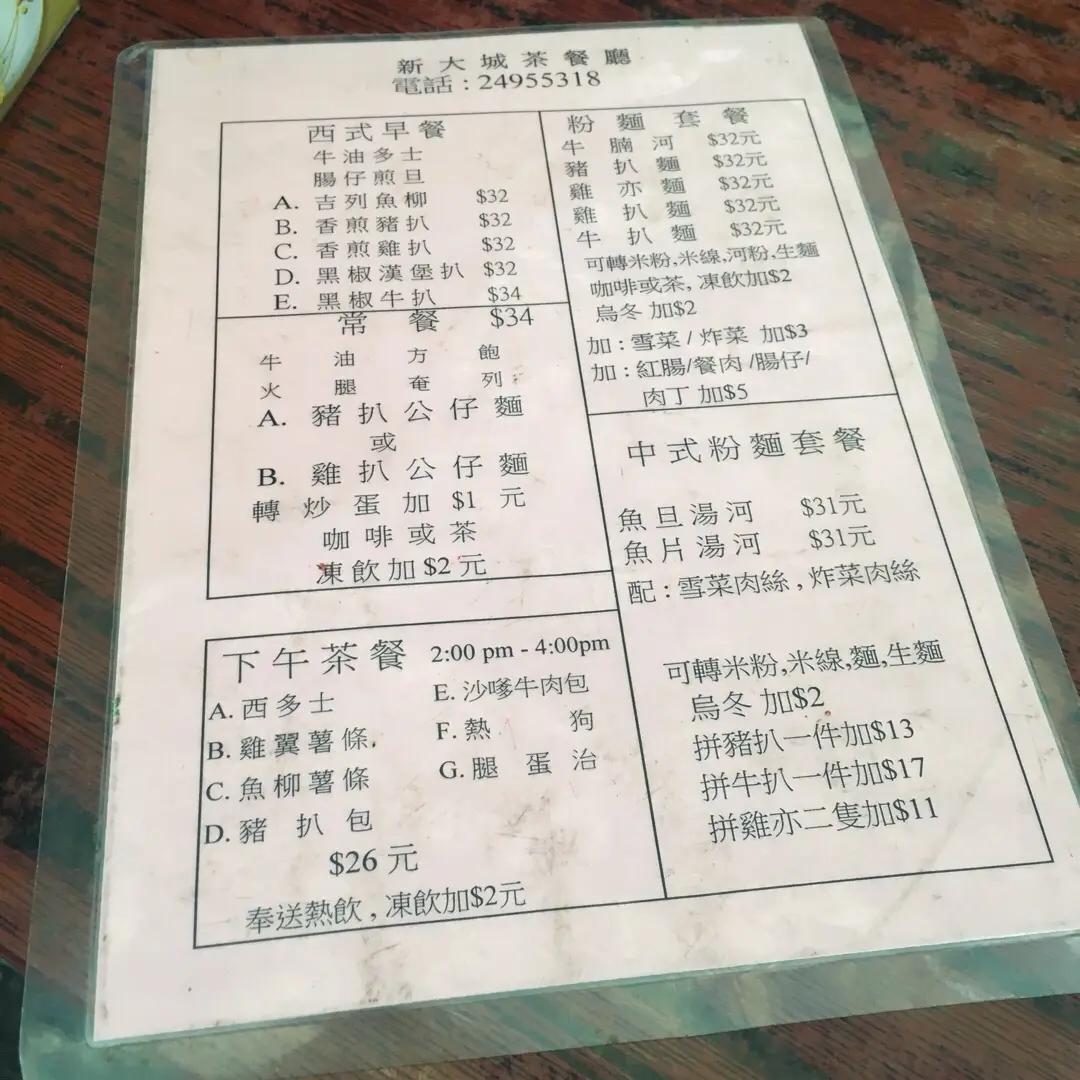 新大城茶餐廳
電話 : 24955318
西式早餐
牛油多士
腸仔煎旦
A. 吉列魚柳 $32
B. 香煎豬扒 $32
C. 香煎雞扒 $32
D. 黑椒漢堡扒 $32
E. 黑椒牛扒 $34
常餐 $34
牛油方飽
火腿奄列
A. 豬扒公仔麵
或
B. 雞扒公仔麵
轉炒蛋加 $1 元
咖啡或茶
凍飲加 $2 元
下午茶餐 2:00 pm - 4:00pm
A. 西多士
B. 雞翼薯條
C. 魚柳薯條
D. 豬扒包
E. 沙嗲牛肉包
F. 熱狗
G. 腿蛋治
$26 元
奉送熱飲 , 凍飲加$2元
粉麵套餐
牛腩河 $32元
豬扒麵 $32元
雞亦麵 $32元
雞扒麵 $32元
牛扒麵 $32元
可轉米粉,米線,河粉,生麵
咖啡或茶, 凍飲加$2
烏冬 加$2
加 : 雪菜 / 炸菜 加$3
加 : 紅腸/餐肉 /腸仔/
肉丁 加$5
中式粉麵套餐
魚旦湯河 $31元
魚片湯河 $31元
配 : 雪菜肉絲 , 炸菜肉絲
可轉米粉,米線,麵,生麵
烏冬 加$2
拼豬扒一件加$13
拼牛扒一件加$17
拼雞亦二隻加$11